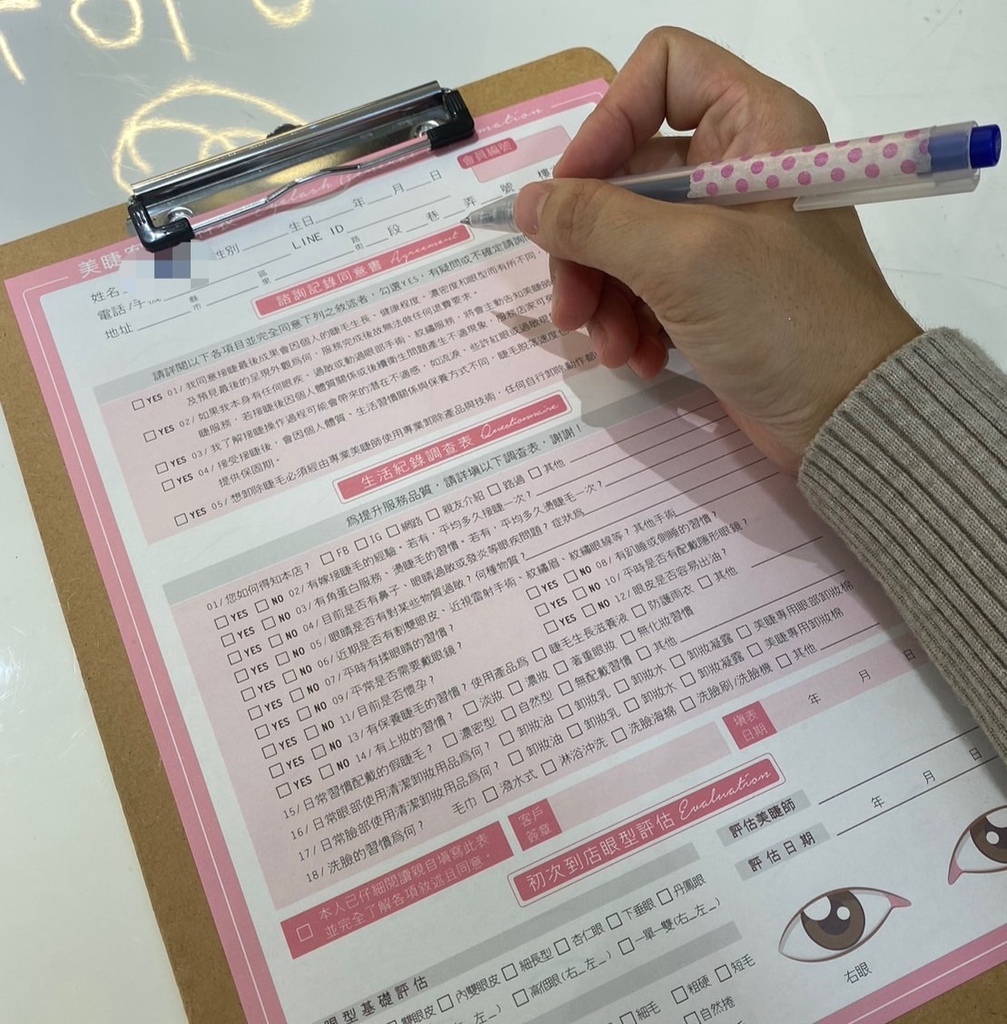 美睫
會員編號
姓名 性別 生日 年 月 日
電話/手 LINE ID
地址 縣市 區 路街 段 巷 弄 號 樓
諮詢記錄同意書 Agreement
請詳閱以下各項目並完全同意下列之敘述者，勾選YES，有疑問或不確定請詢
YES 01/ 我同意接睫最後成果會因個人的睫毛生長、健康程度、濃密度和眼型而有所不同，
及預見最後的呈現外觀為何，服務完成後故無法做任何退費要求。
YES 02/ 如果我本身有任何眼疾、過敏或動過眼部手術、紋繡服務，將會主動告知美睫師
睫服務，若接睫後因個人體質關係或後續衛生問題產生不適現象，
YES 03/ 我了解接睫操作過程可能會帶來的潛在不適感，如流淚、些許紅眼或過敏
YES 04/ 接受接睫後，會因個人體質、生活習慣關係與保養方式不同，睫毛脫落速度
提供保固期。
YES 05/ 想卸除睫毛必須經由專業美睫師使用專業卸除產品與技術，任何自行卸除動作都
生活紀錄調查表 Questionnaire
為提升服務品質，請詳填以下調查表，謝謝！
01/ 您如何得知本店？ FB IG 網路 親友介紹 路過 其他
YES NO 02/ 有嫁接睫毛的經驗，若有，平均多久接睫一次？
YES NO 03/ 有角蛋白服務、燙睫毛的習慣，若有，平均多久燙睫毛一次？
YES NO 04/ 目前是否有鼻子、眼睛過敏或發炎等眼疾問題？症狀為
YES NO 05/ 眼睛是否有對某些物質過敏？何種物質？
YES NO 06/ 近期是否有割雙眼皮、近視雷射手術、紋繡眉、紋繡眼線等？其他手術
YES NO 07/ 平時有揉眼睛的習慣？ YES NO 08/ 有趴睡或側睡的習慣？
YES NO 09/ 平常是否需要戴眼鏡？ YES NO 10/ 平時是否有配戴隱形眼鏡？
YES NO 11/ 目前是否懷孕？ YES NO 12/ 眼皮是否容易出油？
YES NO 13/ 有保養睫毛的習慣？使用產品為 睫毛生長滋養液 防護雨衣 其他
YES NO 14/ 有上妝的習慣？ 淡妝 濃妝 著重眼妝 無化妝習慣
15/ 日常習慣配戴的假睫毛？ 濃密型 自然型 無配戴習慣 其他
16/ 日常眼部使用清潔卸妝用品為何？ 卸妝油 卸妝乳 卸妝水 卸妝凝露 美睫專用眼部卸妝棉
17/ 日常臉部使用清潔卸妝用品為何？ 卸妝油 卸妝乳 卸妝水 卸妝凝露 美睫專用卸妝棉
18/ 洗臉的習慣為何？ 毛巾 潑水式 淋浴沖洗 洗臉海綿 洗臉刷/洗臉機 其他
本人已仔細閱讀親自填寫此表
並完全了解各項敘述且同意。
客戶簽章
填表日期 年 月 日
初次到店眼型評估 Evaluation
評估美睫師
評估日期 年 月 日
眼型基礎評估
雙眼皮 內雙眼皮 細長型 杏仁眼 下垂眼 丹鳳眼
高低眼(右_左_) 一單一雙(右_左_)
細毛 粗硬 短毛
自然捲
右眼